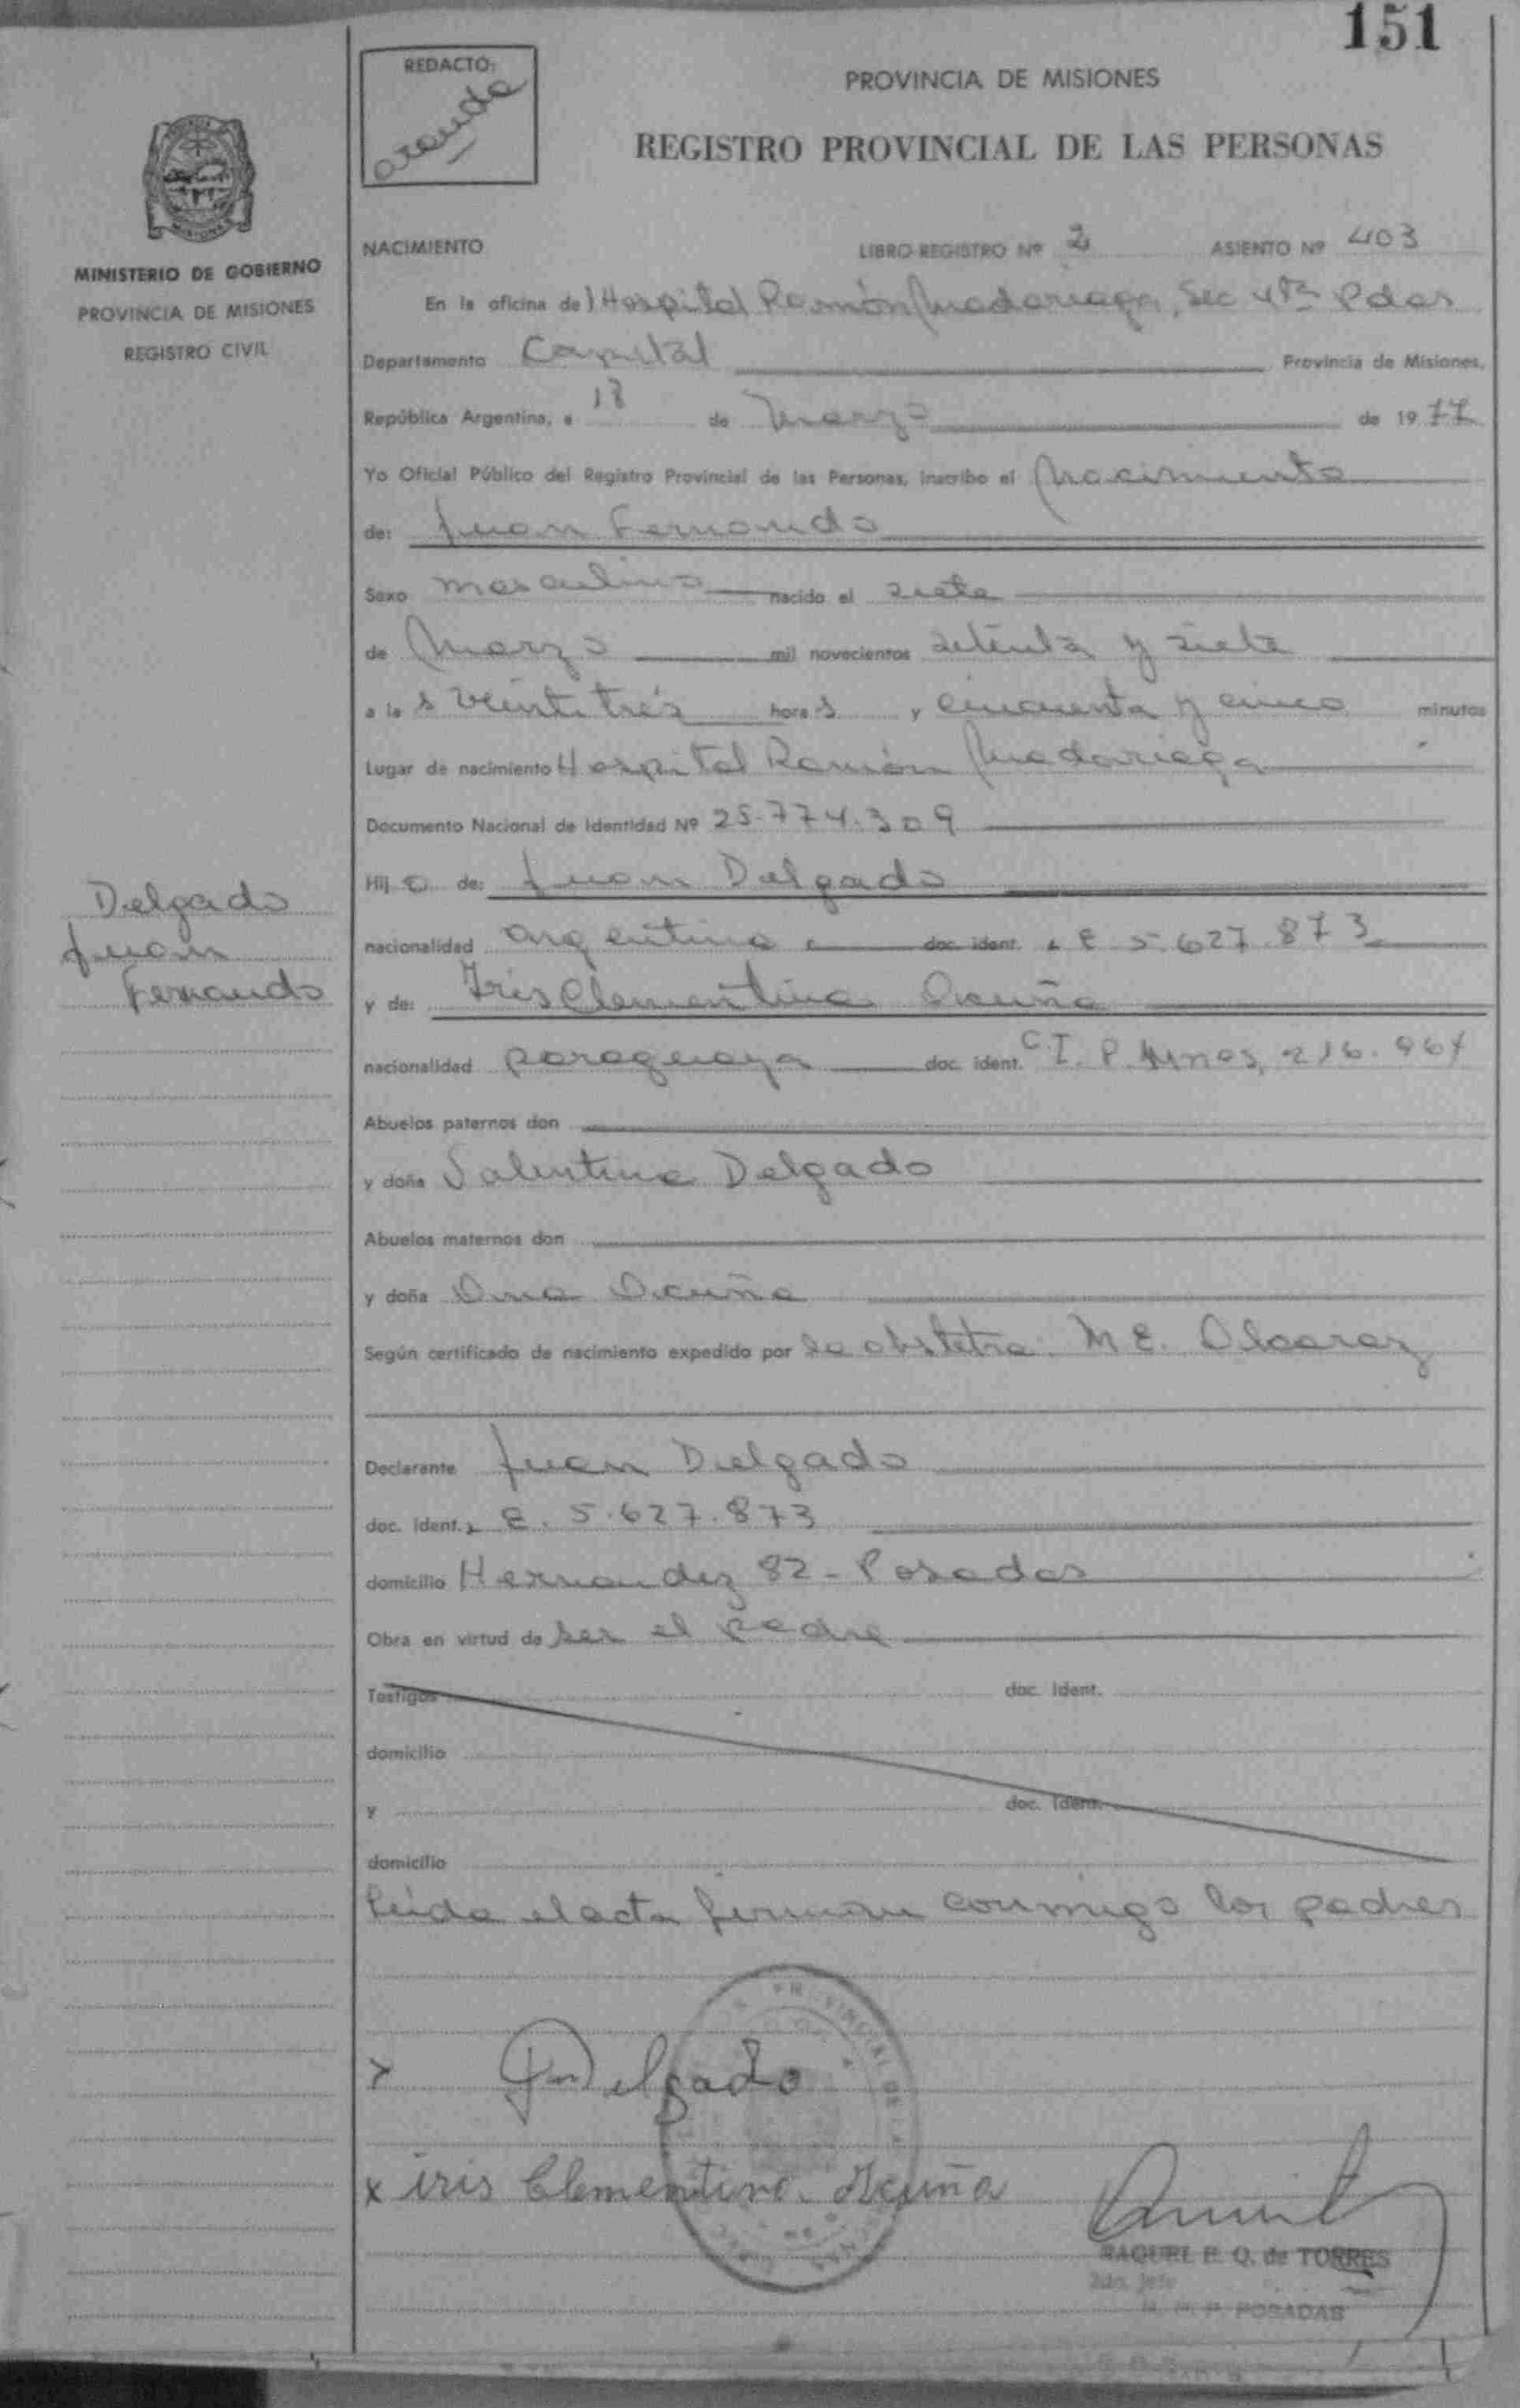 151
REDACTO:
aranda
PROVINCIA DE MISIONES
REGISTRO PROVINCIAL DE LAS PERSONAS
MINISTERIO DE GOBIERNO
PROVINCIA DE MISIONES
REGISTRO CIVIL
NACIMIENTO LIBRO REGISTRO Nº 2 ASIENTO Nº 403
En la oficina del Hospital Ramón Madariaga, Sec 4ta Pdas
Departamento Capital Provincia de Misiones,
República Argentina, a 18 de Marzo de 1977
Yo Oficial Público del Registro Provincial de las Personas, inscribo el Nacimiento
de: Juan Fernando
Sexo masculino nacido el siete
de Marzo mil novecientos setenta y siete
a las veintitrés horas y cincuenta y cinco minutos
Lugar de nacimiento Hospital Ramón Madariaga
Documento Nacional de Identidad Nº 25.774.309
Hijo de: Juan Delgado
Delgado
Juan
Fernando
nacionalidad argentina doc. ident. L E 5.627.873
y de: Iris Clementina Acuña
nacionalidad paraguaya doc. ident. C.I. P. Mnes. 216.964
Abuelos paternos don
y doña Valentina Delgado
Abuelos maternos don
y doña Ana Acuña
Según certificado de nacimiento expedido por la obstetra: M E. Alcaraz
Declarante Juan Delgado
doc. ident. L E. 5.627.873
domicilio Hernandez 82 - Posadas
Obra en virtud de ser el padre
Testigos doc. ident.
domicilio
y doc. ident.
domicilio
leída el acta firman conmigo los padres
x Delgado
x iris Clementina Acuña
RAQUEL E. Q. de TORRES
2da. Jefe
POSADAS